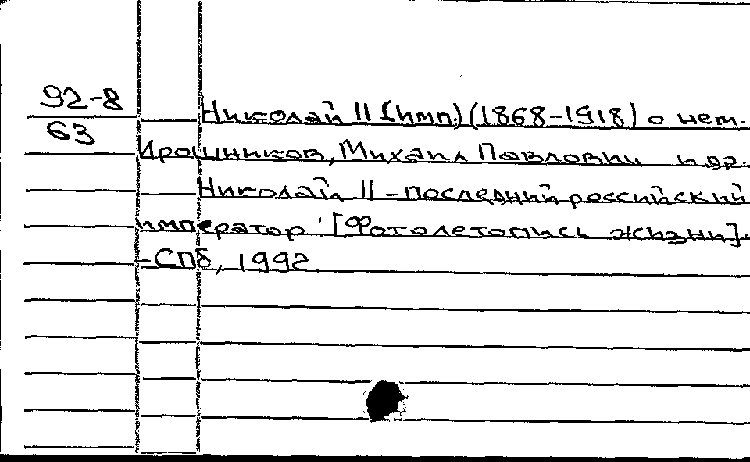 92-8
63
Николай II (имп.) (1868-1918) о нем.
Ирошников, Михаил Павлович и др.
Николай II - последний российский
император : [Фотолетопись жизни].
- СПб, 1992